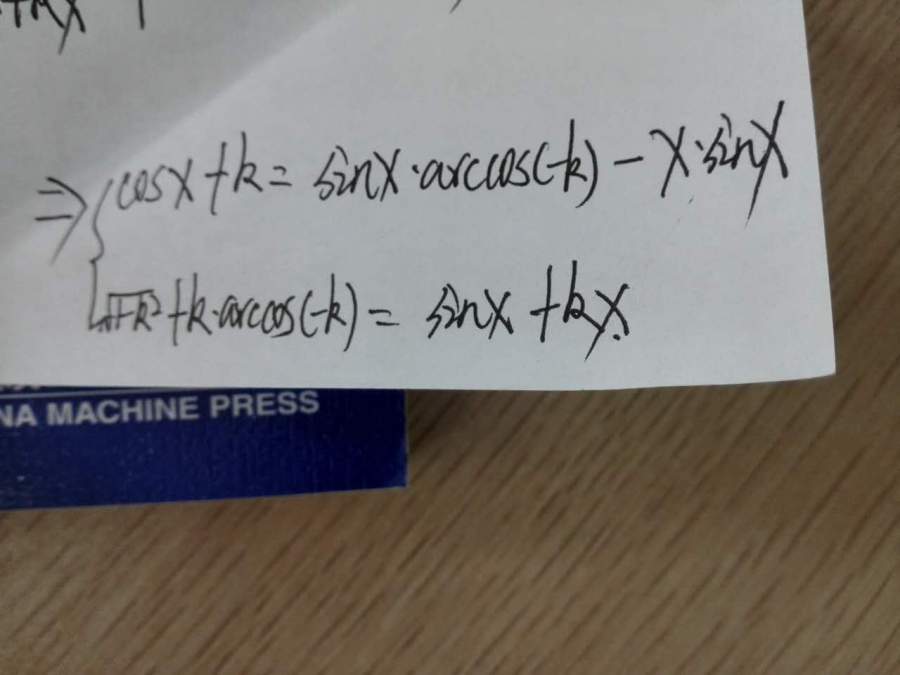 ⇒ { cosx + k = sinx · arccos(-k) - x · sinx
√1-k² + k · arccos(-k) = sinx + kx.
NA MACHINE PRESS